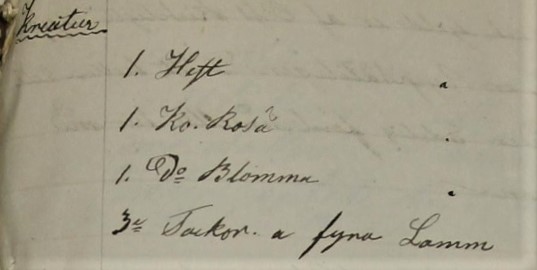 Kreatur
1. Heft
1. Ko. Rosa
1. Do Blomma
3e Tackor. a fyra Lamm